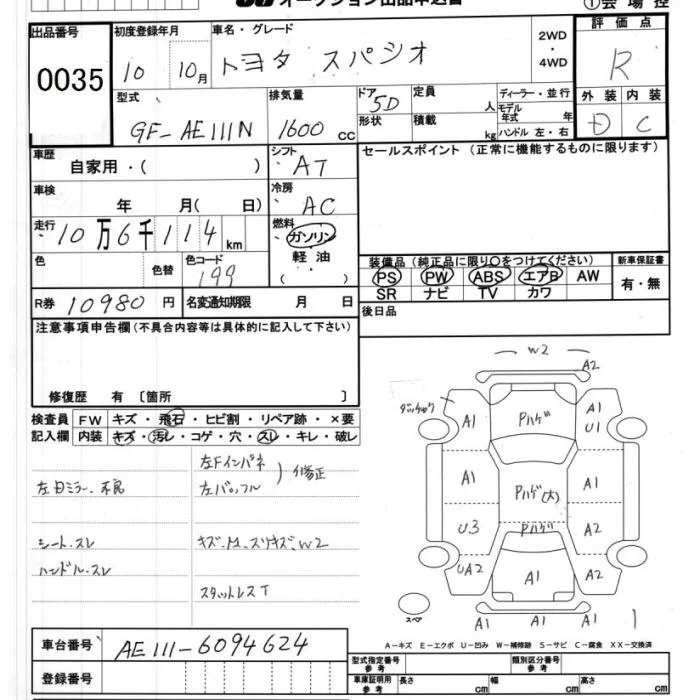 オークション出品申込書
①会場控
出品番号
0035
初度登録年月
10 10月
車名・グレード
トヨタ スパシオ
2WD
・
4WD
評価点
R
型式
GF-AE111N
排気量
1600 CC
ドア
5D
形状
定員
人
積載
kg
ディーラー・並行
モデル年式 年
ハンドル 左・右
外装 内装
D C
車歴
自家用・( )
シフト
AT
セールスポイント (正常に機能するものに限ります)
車検
年 月( 日)
冷房
AC
走行
10万6千114km
燃料
ガソリン
軽油
( )
色
色替
色コード
199
装備品(純正品に限り○をつけてください)
PS PW ABS エアB AW
SR ナビ TV カワ
新車保証書
有・無
R券 10980円
名変通知期限 月 日
後日品
注意事項申告欄(不具合内容等は具体的に記入して下さい)
修復歴 有〔箇所 〕
検査員
記入欄
FW キズ・飛石・ヒビ割・リペア跡・×要
内装 キズ・汚レ・コゲ・穴・スレ・キレ・破レ
左Fインパネ
左バッフル
修正
左目ミラー・不良
シート・スレ
キズ・M・スリキズ・W2
ハンドル・スレ
スタットレスT
W2
A2
A1
Pハゲ
A1
U1
A1
Pハゲ(大)
A1
U3
Pハゲ
A2
UA2
A1
A2
スペア
A1
A1
A1
A-キズ E-エクボ U-凹み W-補修跡 S-サビ C-腐食 XX-交換済
車台番号
AE111-6094624
登録番号
型式指定番号
参考
類別区分番号
参考
車庫証明用
参考
長さ cm
幅 cm
高さ cm